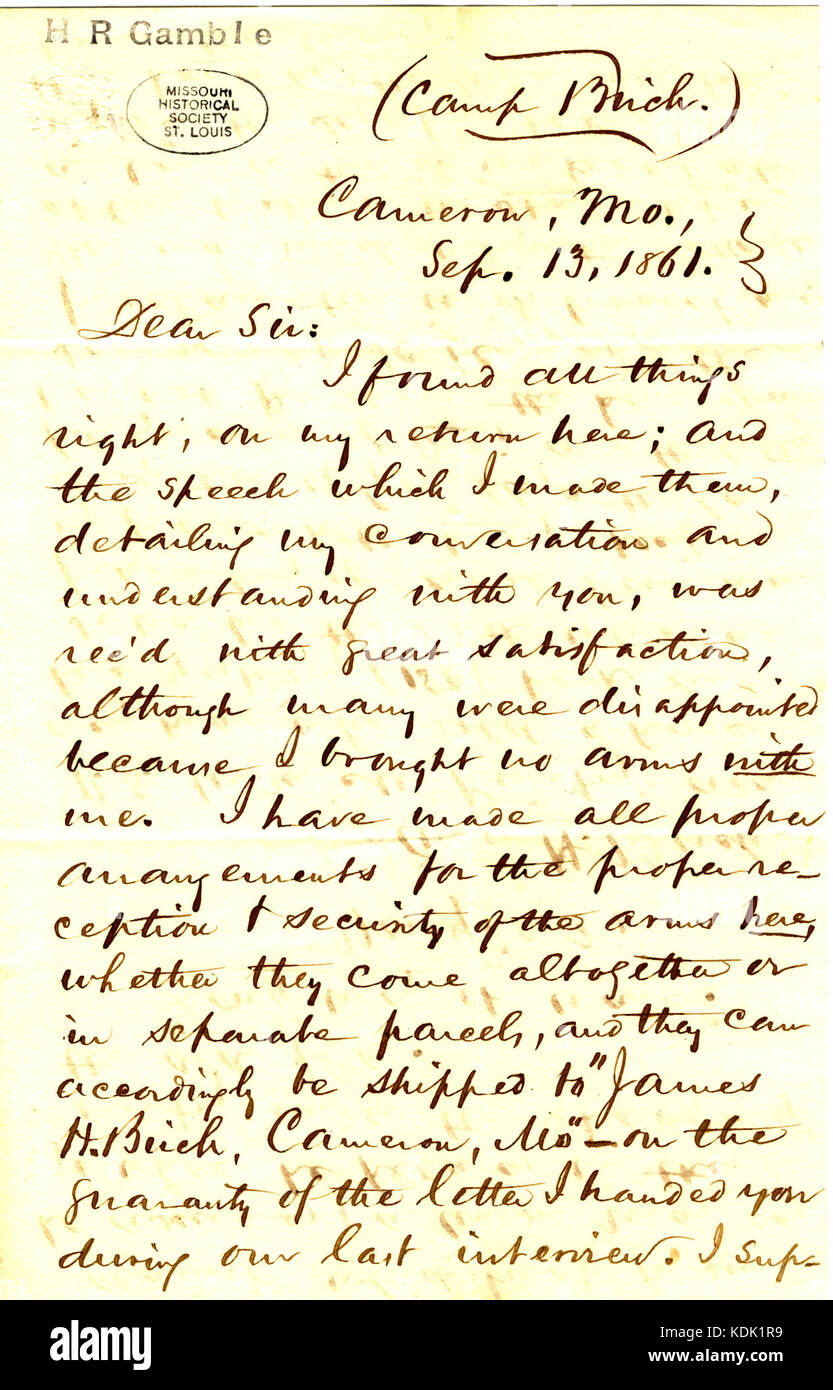 H R Gamble
MISSOURI
HISTORICAL
SOCIETY
ST. LOUIS
(Camp Birch.)
Cameron, Mo.,
Sep. 13, 1861.
Dear Sir:
I found all things
right, on my return here; and
the speech which I made them,
detailing my conversation and
understanding with you, was
rec'd with great satisfaction,
although many were disappointed
because I brought no arms with
me. I have made all proper
arrangements for the proper re-
ception & security of the arms here,
whether they come altogether or
in separate parcels, and they can
accordingly be shipped to "James
H. Birch, Cameron, Mo" - on the
guaranty of the letter I handed you
during our last interview. I sup-
alamy
Image ID: KDK1R9
www.alamy.com